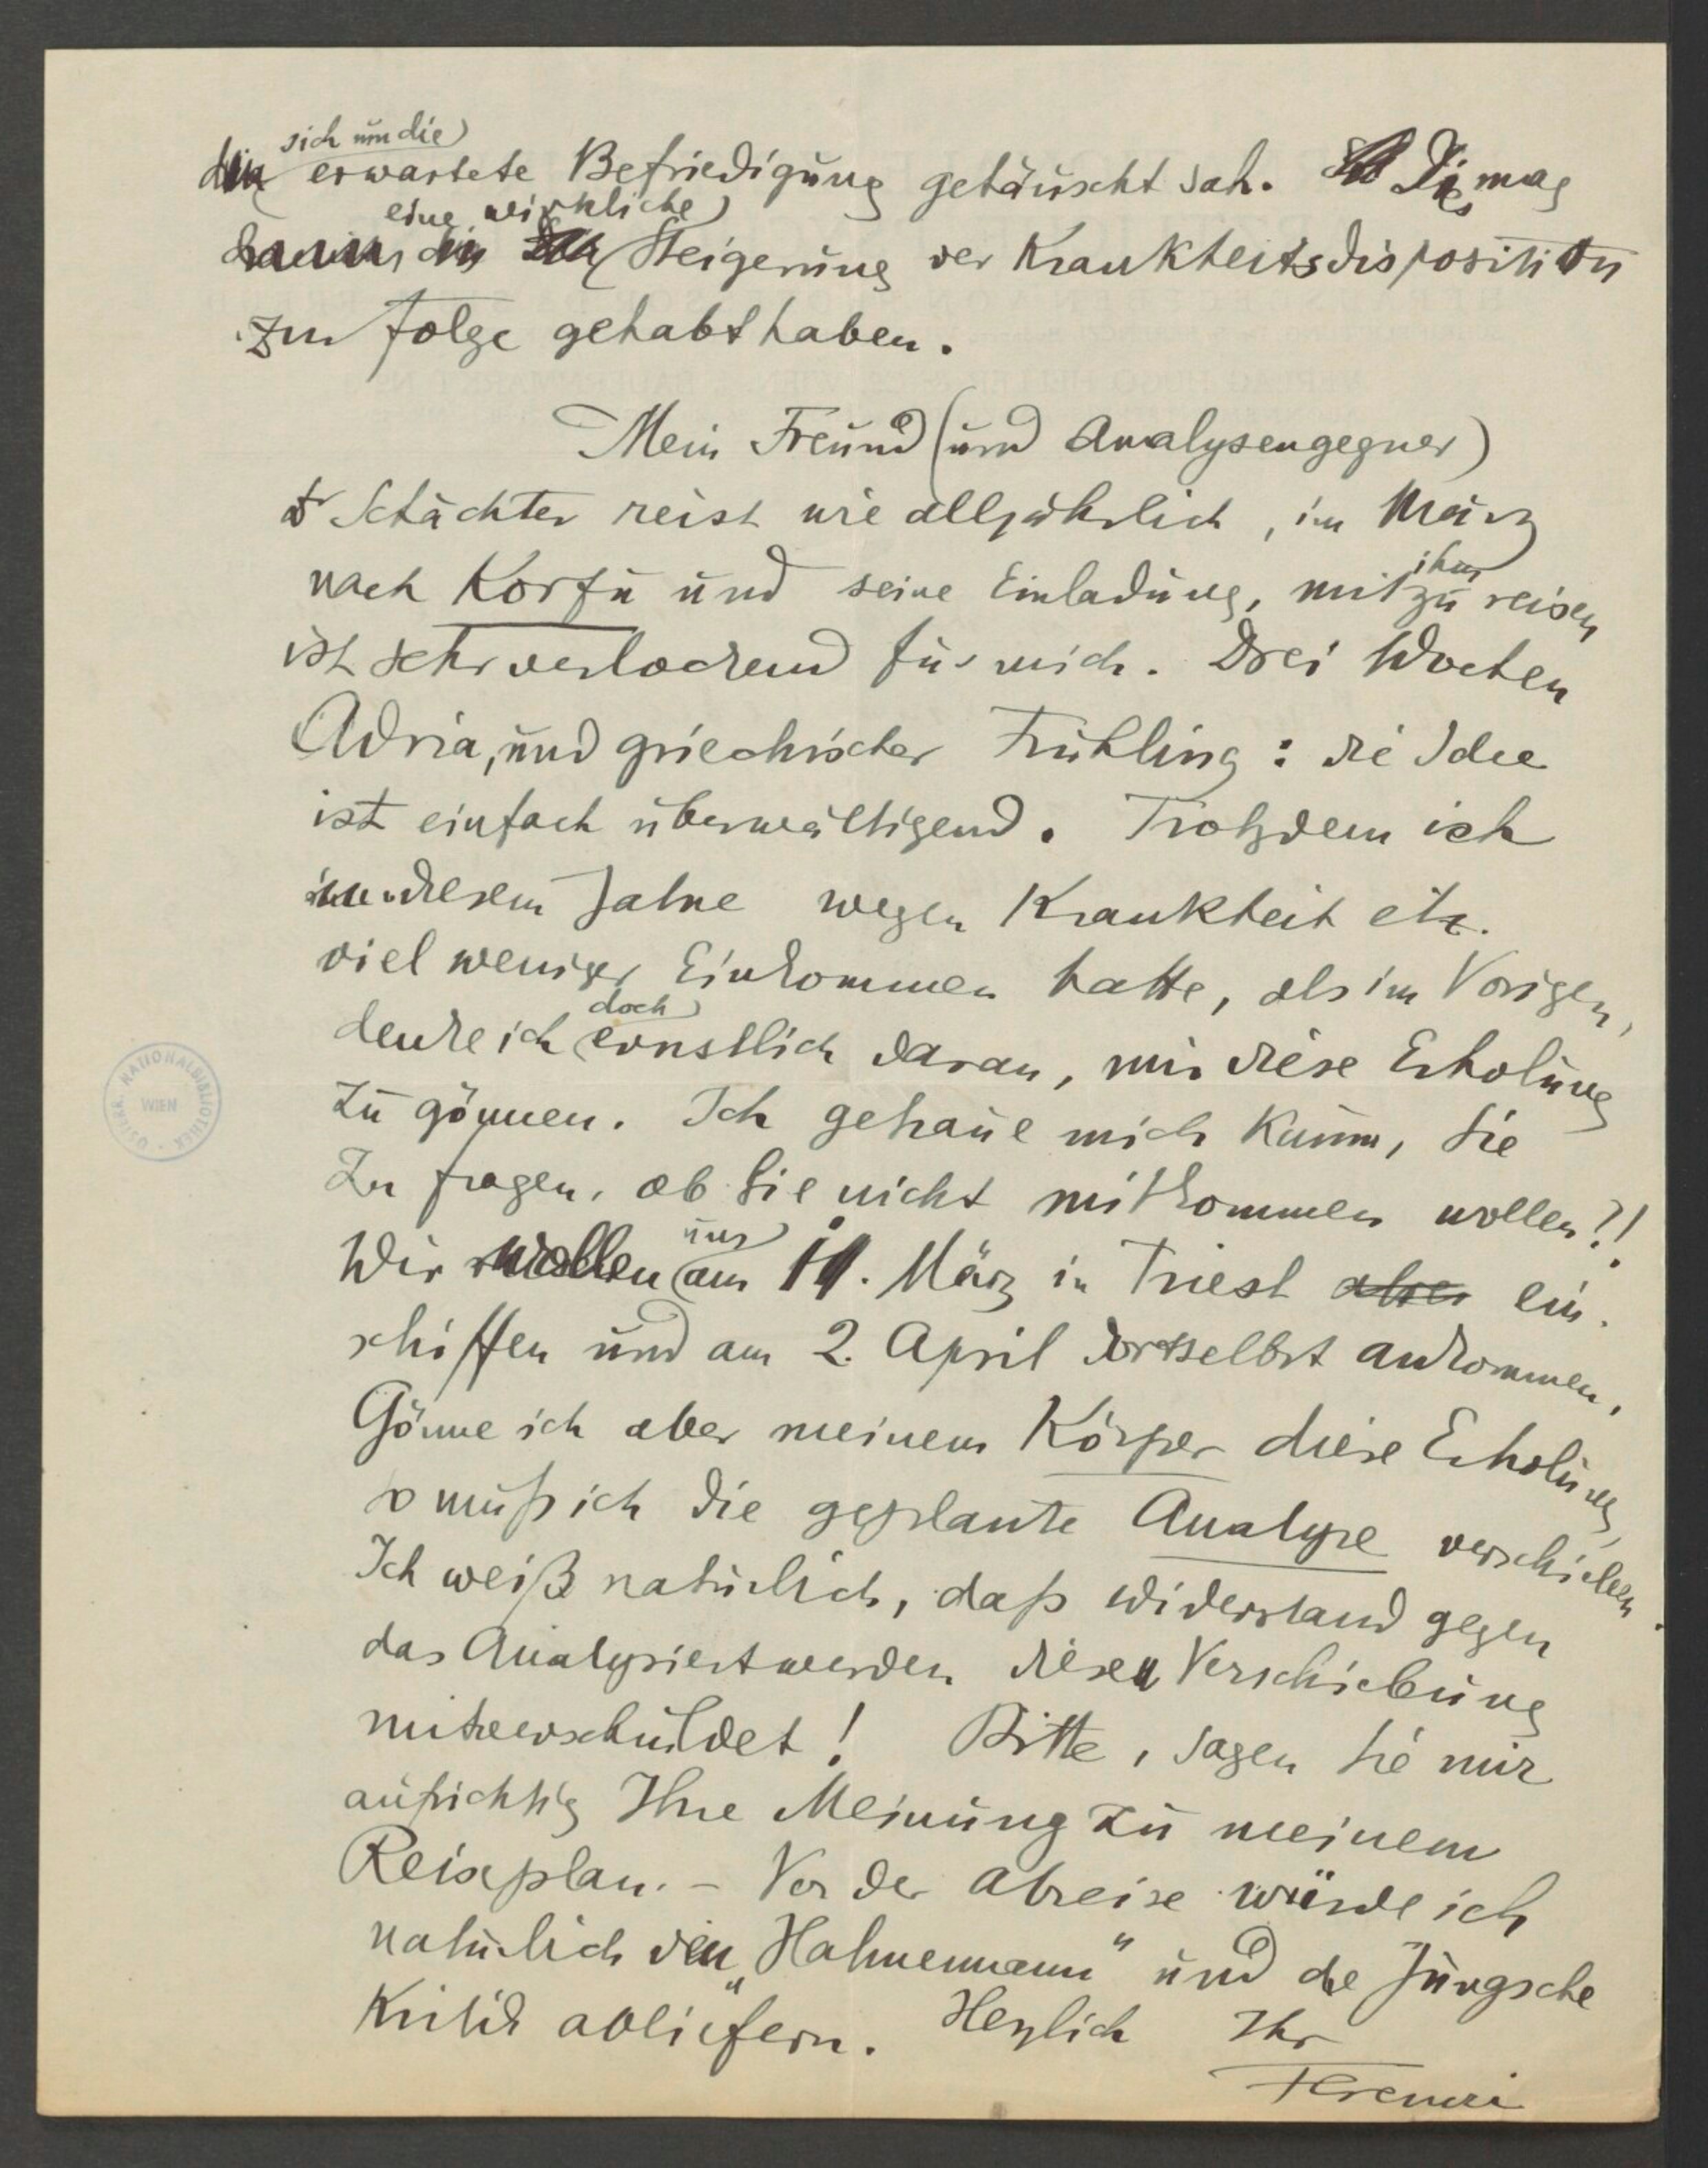 sich um die
erwartete Befriedigung getäuscht sah. Dies mag
eine wirkliche
Steigerung der Krankheitsdisposition
zur Folge gehabt haben.
Mein Freund (und Analysengegner)
Dr Schächter reist wie alljährlich, im März
ihm
nach Korfu und seine Einladung, mit zu reisen
ist sehr verlockend für mich. Drei Wochen
Adria, und griechischer Frühling: die Idee
ist einfach überwältigend. Trotzdem ich
in diesem Jahre wegen Krankheit etc.
viel weniger Einkommen hatte, als im Vorigen,
doch
denke ich ernstlich daran, mir diese Erholung
zu gönnen. Ich getraue mich kaum, Sie
zu fragen, ob Sie nicht mitkommen wollen?!
uns
Wir wollen am März in Triest aber ein-
schiffen und am 2. April dortselbst ankommen.
Gönne ich aber meinem Körper diese Erholung,
so muß ich die geplante Analyse verschieben.
Ich weiß natürlich, daß Widerstand gegen
das Analysiertwerden diese Verschiebung
mitverschuldet! Bitte, sagen Sie mir
aufrichtig Ihre Meinung zu meinem
Reiseplan. – Vor der Abreise würde ich
natürlich den „Hahnemann“ und die Jungsche
Kritik abliefern. Herzlich Ihr
Ferenczi
ÖSTERR. NATIONALBIBLIOTHEK
WIEN